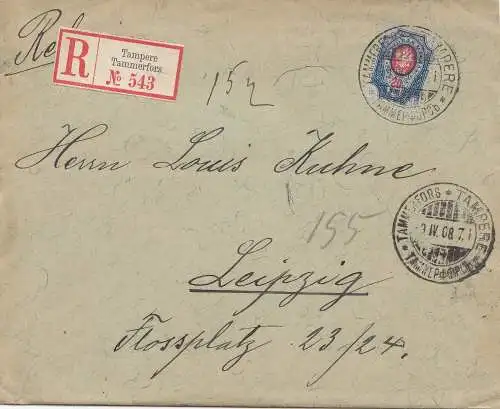 R
Tampere
Tammerfors
№ 543
15
20
TAMMERFORS * TAMPERE
ТАММЕРФОРСЪ
Herrn Louis Kuhne
155
TAMMERFORS * TAMPERE
IV. 08. 7.
ТАММЕРФОРСЪ
Leipzig
Flossplatz 23/24.